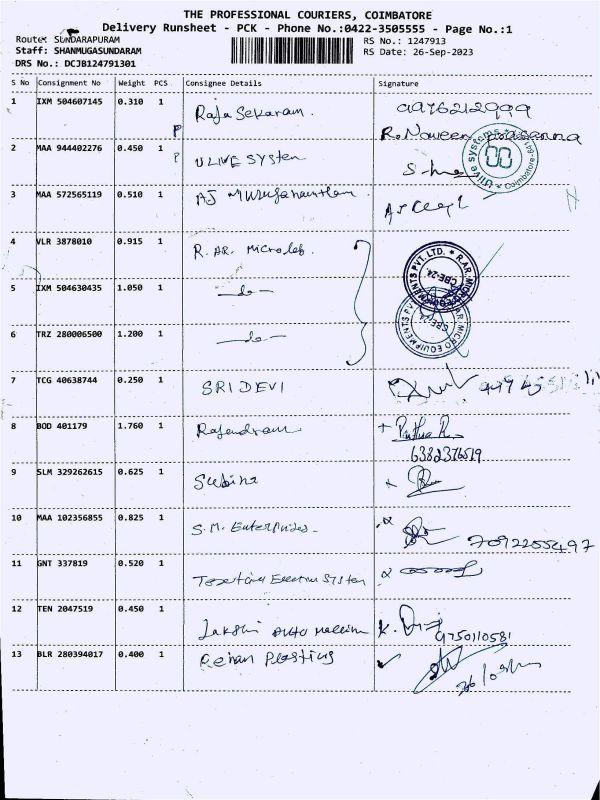 THE PROFESSIONAL COURIERS, COIMBATORE
Delivery Runsheet - PCK - Phone No.:0422-3505555 - Page No.:1
Route: SUNDARAPURAM
RS No.: 1247913
Staff: SHANMUGASUNDARAM
RS Date: 26-Sep-2023
DRS No.: DCJB124791301
S No Consignment No Weight PCS Consignee Details Signature
1 IXM 504607145 0.310 1 Raja Sekaram. 9976212999
P R. Naveen prasanna
2 MAA 944402276 0.450 1 ULIVE SYSTem
P
Ulive systems Coimbatore
3 MAA 572565119 0.510 1 AJ
4 VLR 3878010 0.915 1 R. AR. Microlab.
R.AR.MICRO EQUIPMENTS PVT. LTD. CBE-24
5 IXM 504630435 1.050 1 —do—
R.AR.MICRO EQUIPMENTS PVT. CBE-24
6 TRZ 280006500 1.200 1 —do—
7 TCG 40638744 0.250 1 SRIDEVI
8 BOD 401179 1.760 1 Rajendram
6382376519
9 SLM 329262615 0.625 1 Subina
10 MAA 102356855 0.825 1 S.M. Enterprises
7092255497
11 GNT 337819 0.520 1 System
12 TEN 2047519 0.450 1 Lakshi Auto K.
9750110581
13 BLR 280394017 0.400 1 Rehan Plastics